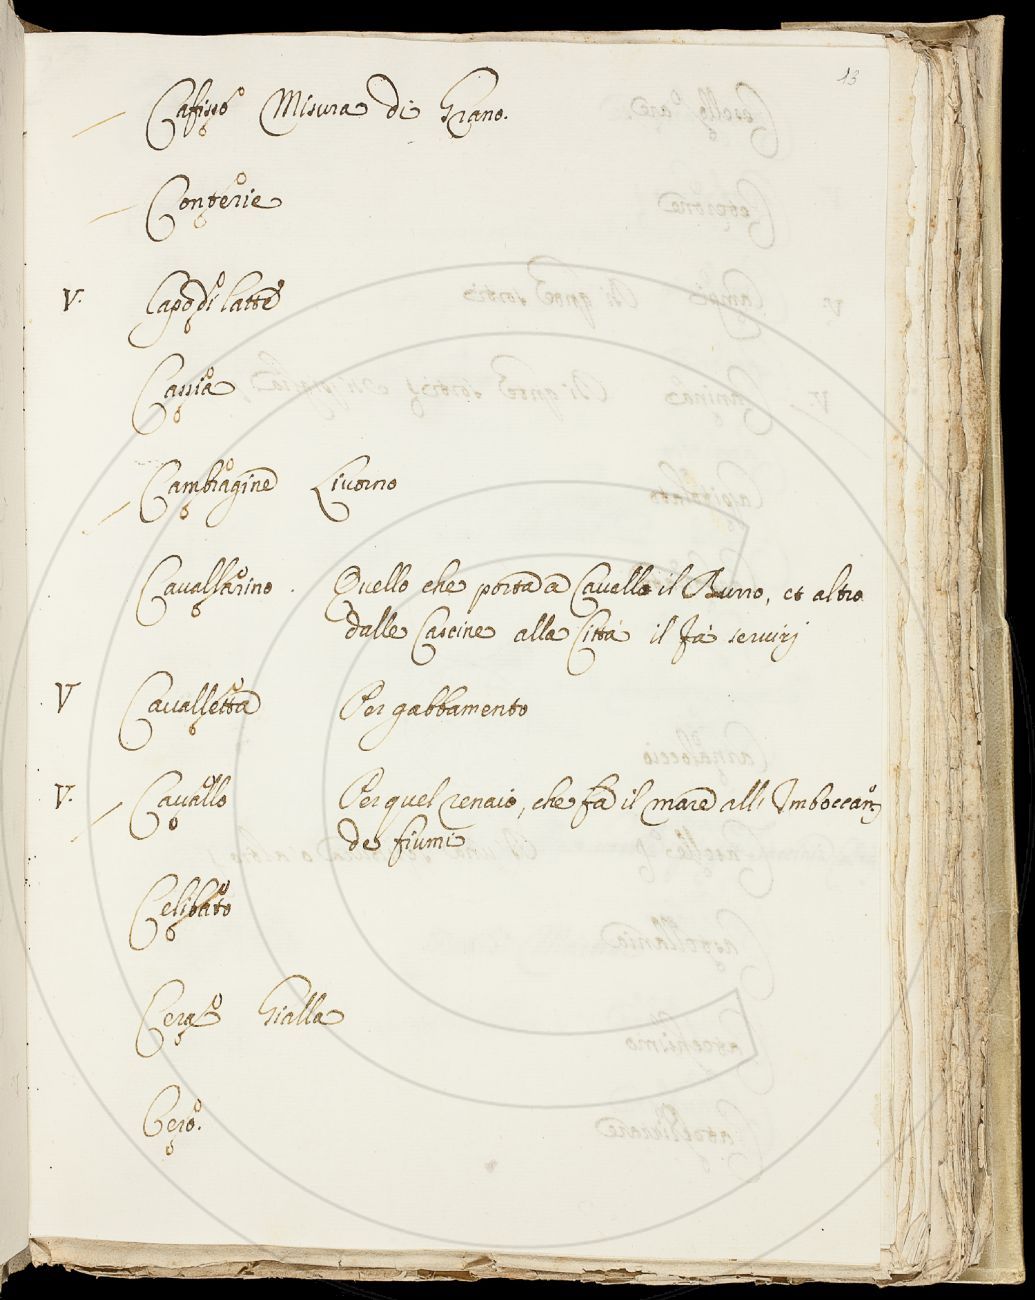 13
Cafisso Misura di Grano.
Conterie
V. Capo di latte
Cassia
Cambragine Livorno
Cavallarino. Quello che porta a Cavallo il Burro, et altro
dalle Cascine alla Città il fà servirj
V Cavalletta Per gabbamento
V. Cavallo Per quel renaio, che fa il mare alli
de fiumi
Celibato
Cera Gialla
Cero.